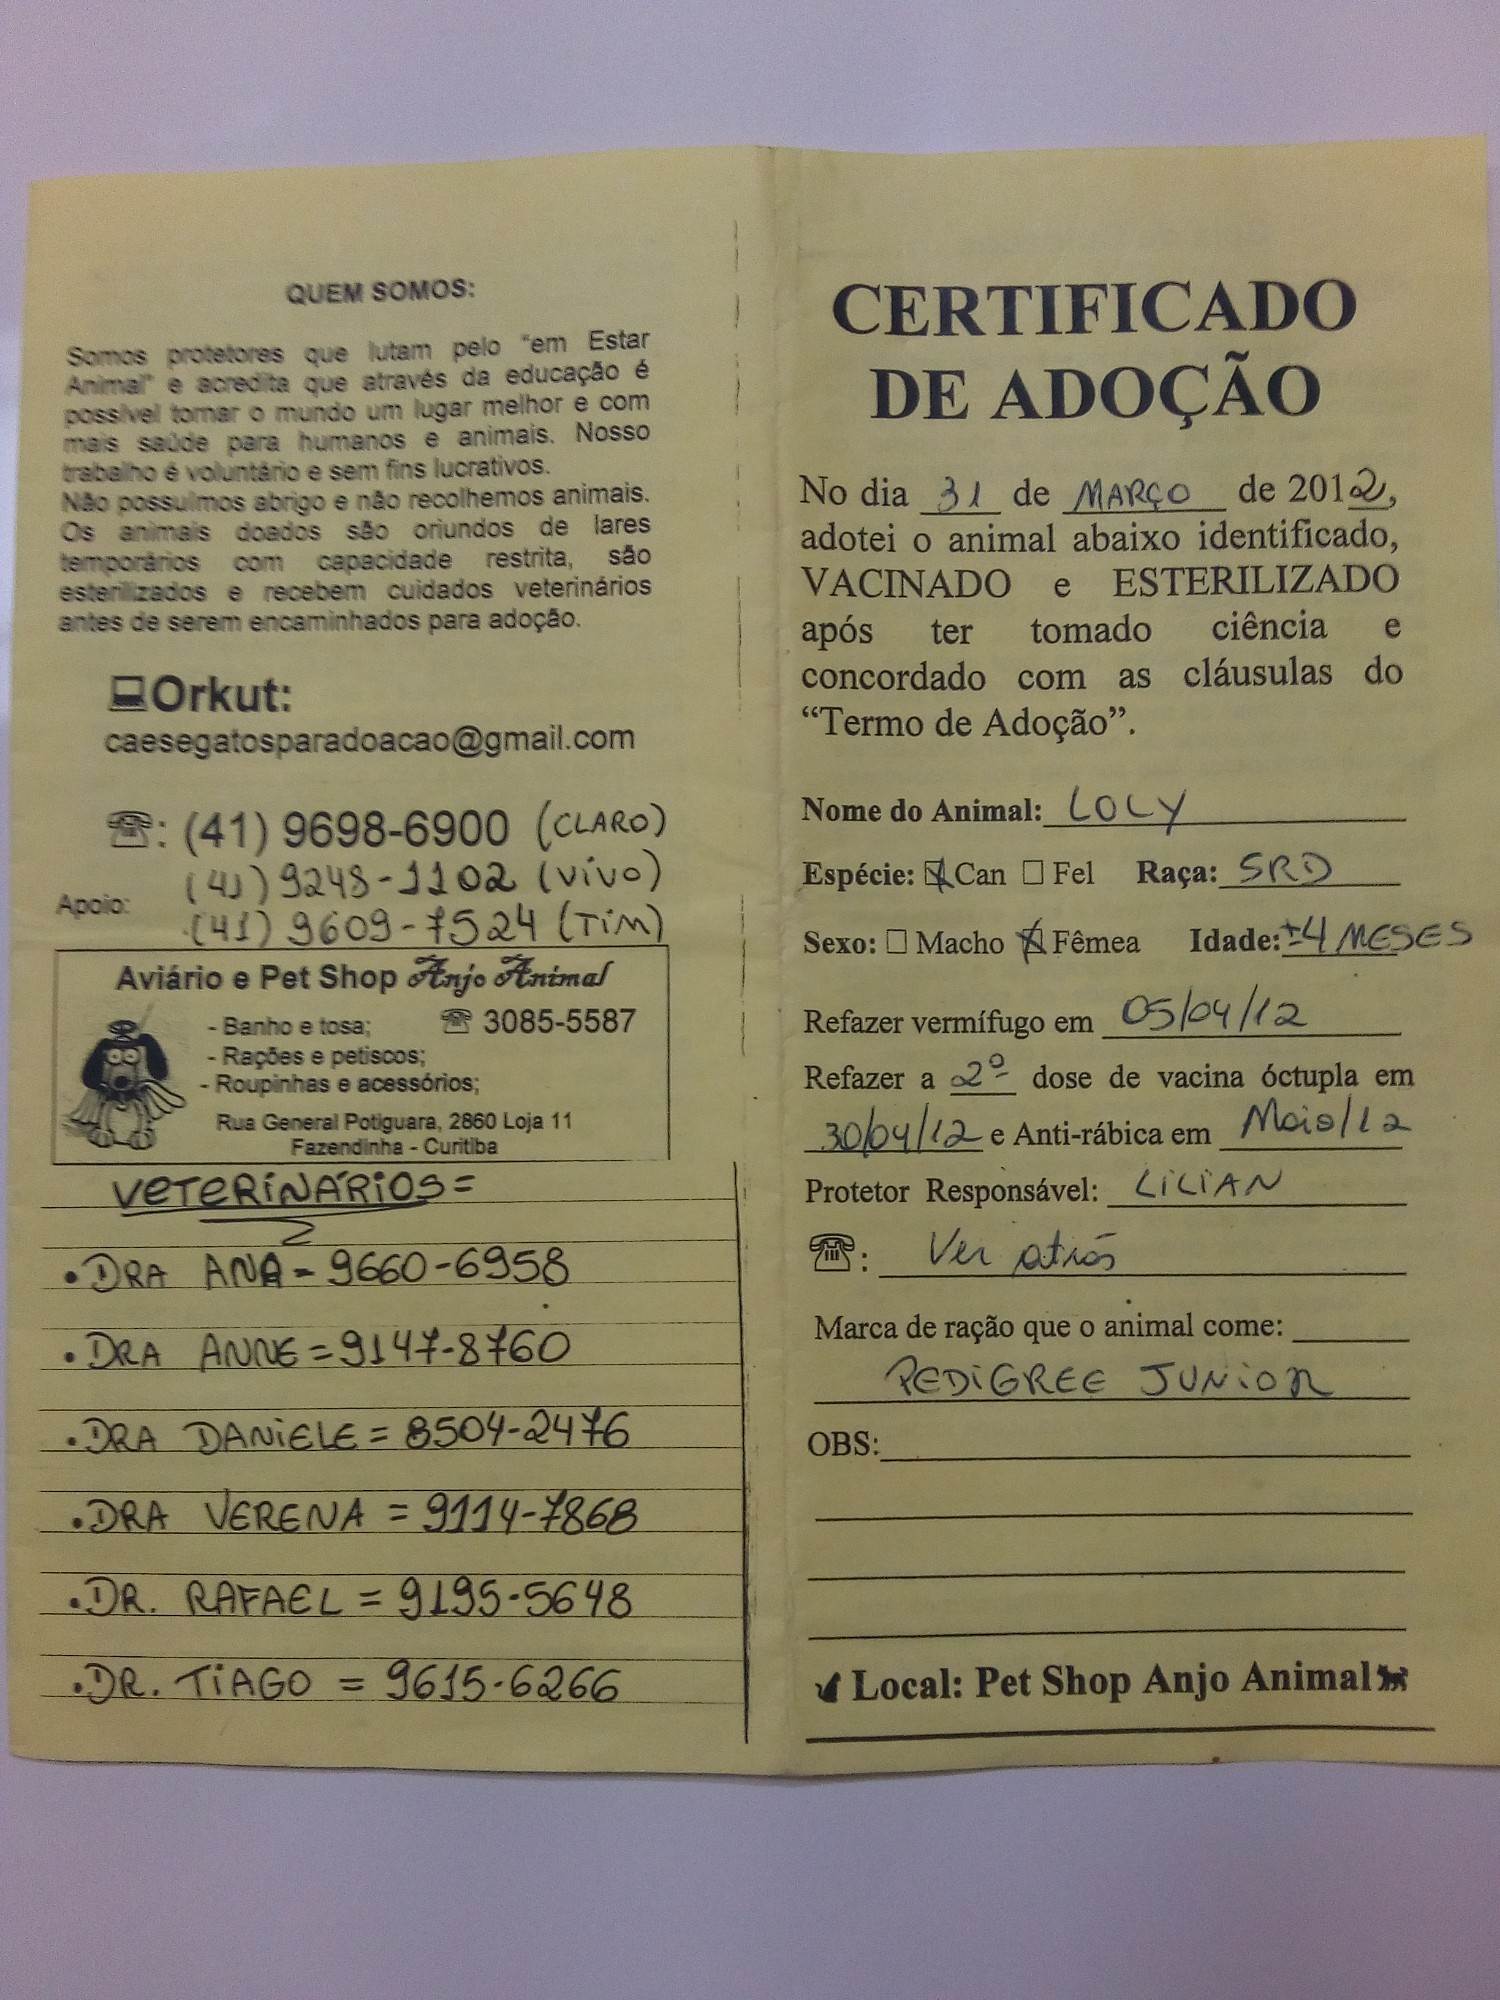 QUEM SOMOS:
Somos protetores que lutam pelo “em Estar
Animal” e acredita que através da educação é
possível tornar o mundo um lugar melhor e com
mais saúde para humanos e animais. Nosso
trabalho é voluntário e sem fins lucrativos.
Não possuímos abrigo e não recolhemos animais.
Os animais doados são oriundos de lares
temporários com capacidade restrita, são
esterilizados e recebem cuidados veterinários
antes de serem encaminhados para adoção.
Orkut:
caesegatosparadoacao@gmail.com
☎: (41) 9698-6900 (CLARO)
(41) 9248-1102 (VIVO)
Apoio:
(41) 9609-7524 (TIM)
Aviário e Pet Shop Anjo Animal
- Banho e tosa; ☎ 3085-5587
- Rações e petiscos;
- Roupinhas e acessórios;
Rua General Potiguara, 2860 Loja 11
Fazendinha - Curitiba
VETERINÁRIOS=
• DRA ANA - 9660-6958
• DRA ANNE = 9147-8760
• DRA DANIELE = 8504-2476
• DRA VERENA = 9114-7868
• DR. RAFAEL = 9195-5648
• DR. TIAGO = 9615-6266
CERTIFICADO
DE ADOÇÃO
No dia 31 de MARÇO de 2012,
adotei o animal abaixo identificado,
VACINADO e ESTERILIZADO
após ter tomado ciência e
concordado com as cláusulas do
“Termo de Adoção”.
Nome do Animal: LOLY
Espécie: ☒ Can ☐ Fel Raça: SRD
Sexo: ☐ Macho ☒ Fêmea Idade: ±4 MESES
Refazer vermífugo em 05/04/12
Refazer a 2º dose de vacina óctupla em
30/04/12 e Anti-rábica em Maio/12
Protetor Responsável: LILIAN
☎: Ver atrás
Marca de ração que o animal come:
PEDIGREE JUNIOR
OBS:
Local: Pet Shop Anjo Animal